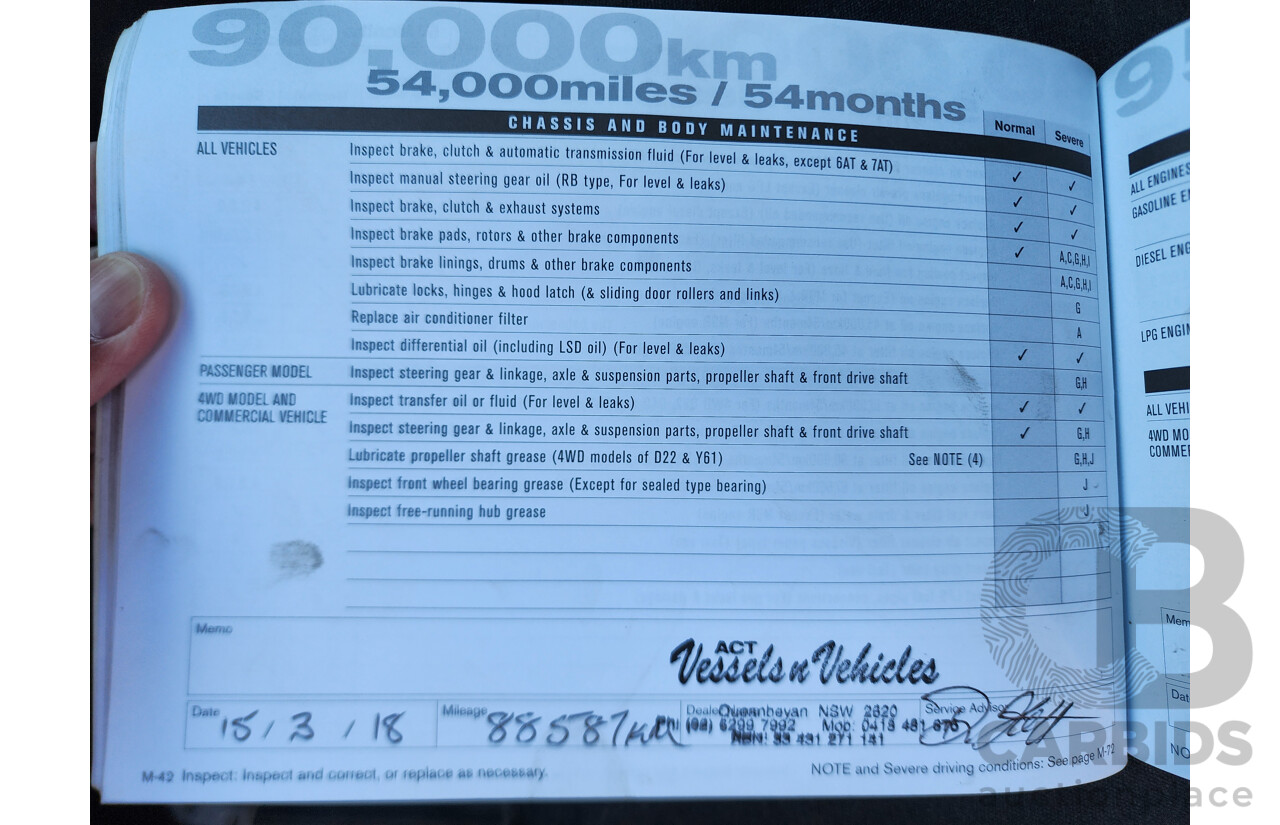 90,000km
54,000miles / 54months
CHASSIS AND BODY MAINTENANCE Normal Severe
ALL VEHICLES Inspect brake, clutch & automatic transmission fluid (For level & leaks, except 6AT & 7AT) ✓ ✓
Inspect manual steering gear oil (RB type, For level & leaks) ✓ ✓
Inspect brake, clutch & exhaust systems ✓ ✓
Inspect brake pads, rotors & other brake components ✓ A,C,G,H,I
Inspect brake linings, drums & other brake components A,C,G,H,I
Lubricate locks, hinges & hood latch (& sliding door rollers and links) G
Replace air conditioner filter A
Inspect differential oil (including LSD oil) (For level & leaks) ✓ ✓
PASSENGER MODEL Inspect steering gear & linkage, axle & suspension parts, propeller shaft & front drive shaft G,H
4WD MODEL AND Inspect transfer oil or fluid (For level & leaks) ✓ ✓
COMMERCIAL VEHICLE Inspect steering gear & linkage, axle & suspension parts, propeller shaft & front drive shaft ✓ G,H
Lubricate propeller shaft grease (4WD models of D22 & Y61) See NOTE (4) G,H,J
Inspect front wheel bearing grease (Except for sealed type bearing) J
Inspect free-running hub grease J
Memo
ACT
Vessels n Vehicles
Date 15 / 3 / 18 Mileage 88587km Dealer Queanbeyan NSW 2620 Service Advisor
PH: (02) 6299 7992 Mob: 0418 481 676
ABN: 33 431 271 141
M-42 Inspect: Inspect and correct, or replace as necessary. NOTE and Severe driving conditions: See page M-72
9
ALL ENGINES
GASOLINE
DIESEL
LPG
ALL
4WD
Mem
Dat
NO
CB
CARBIDS
auction place